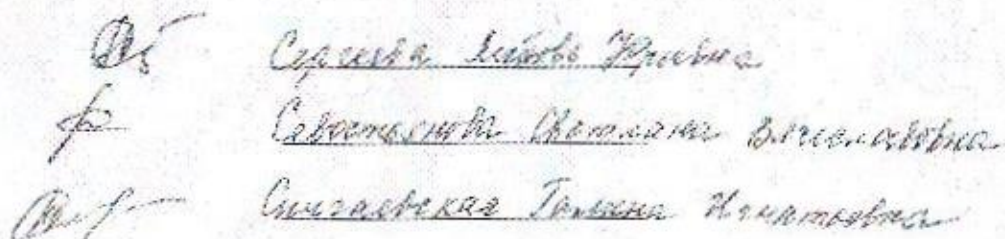 Сергеева Любовь Юрьевна
Севостьянова Светлана Вячеславовна
Галина Игнатьевна